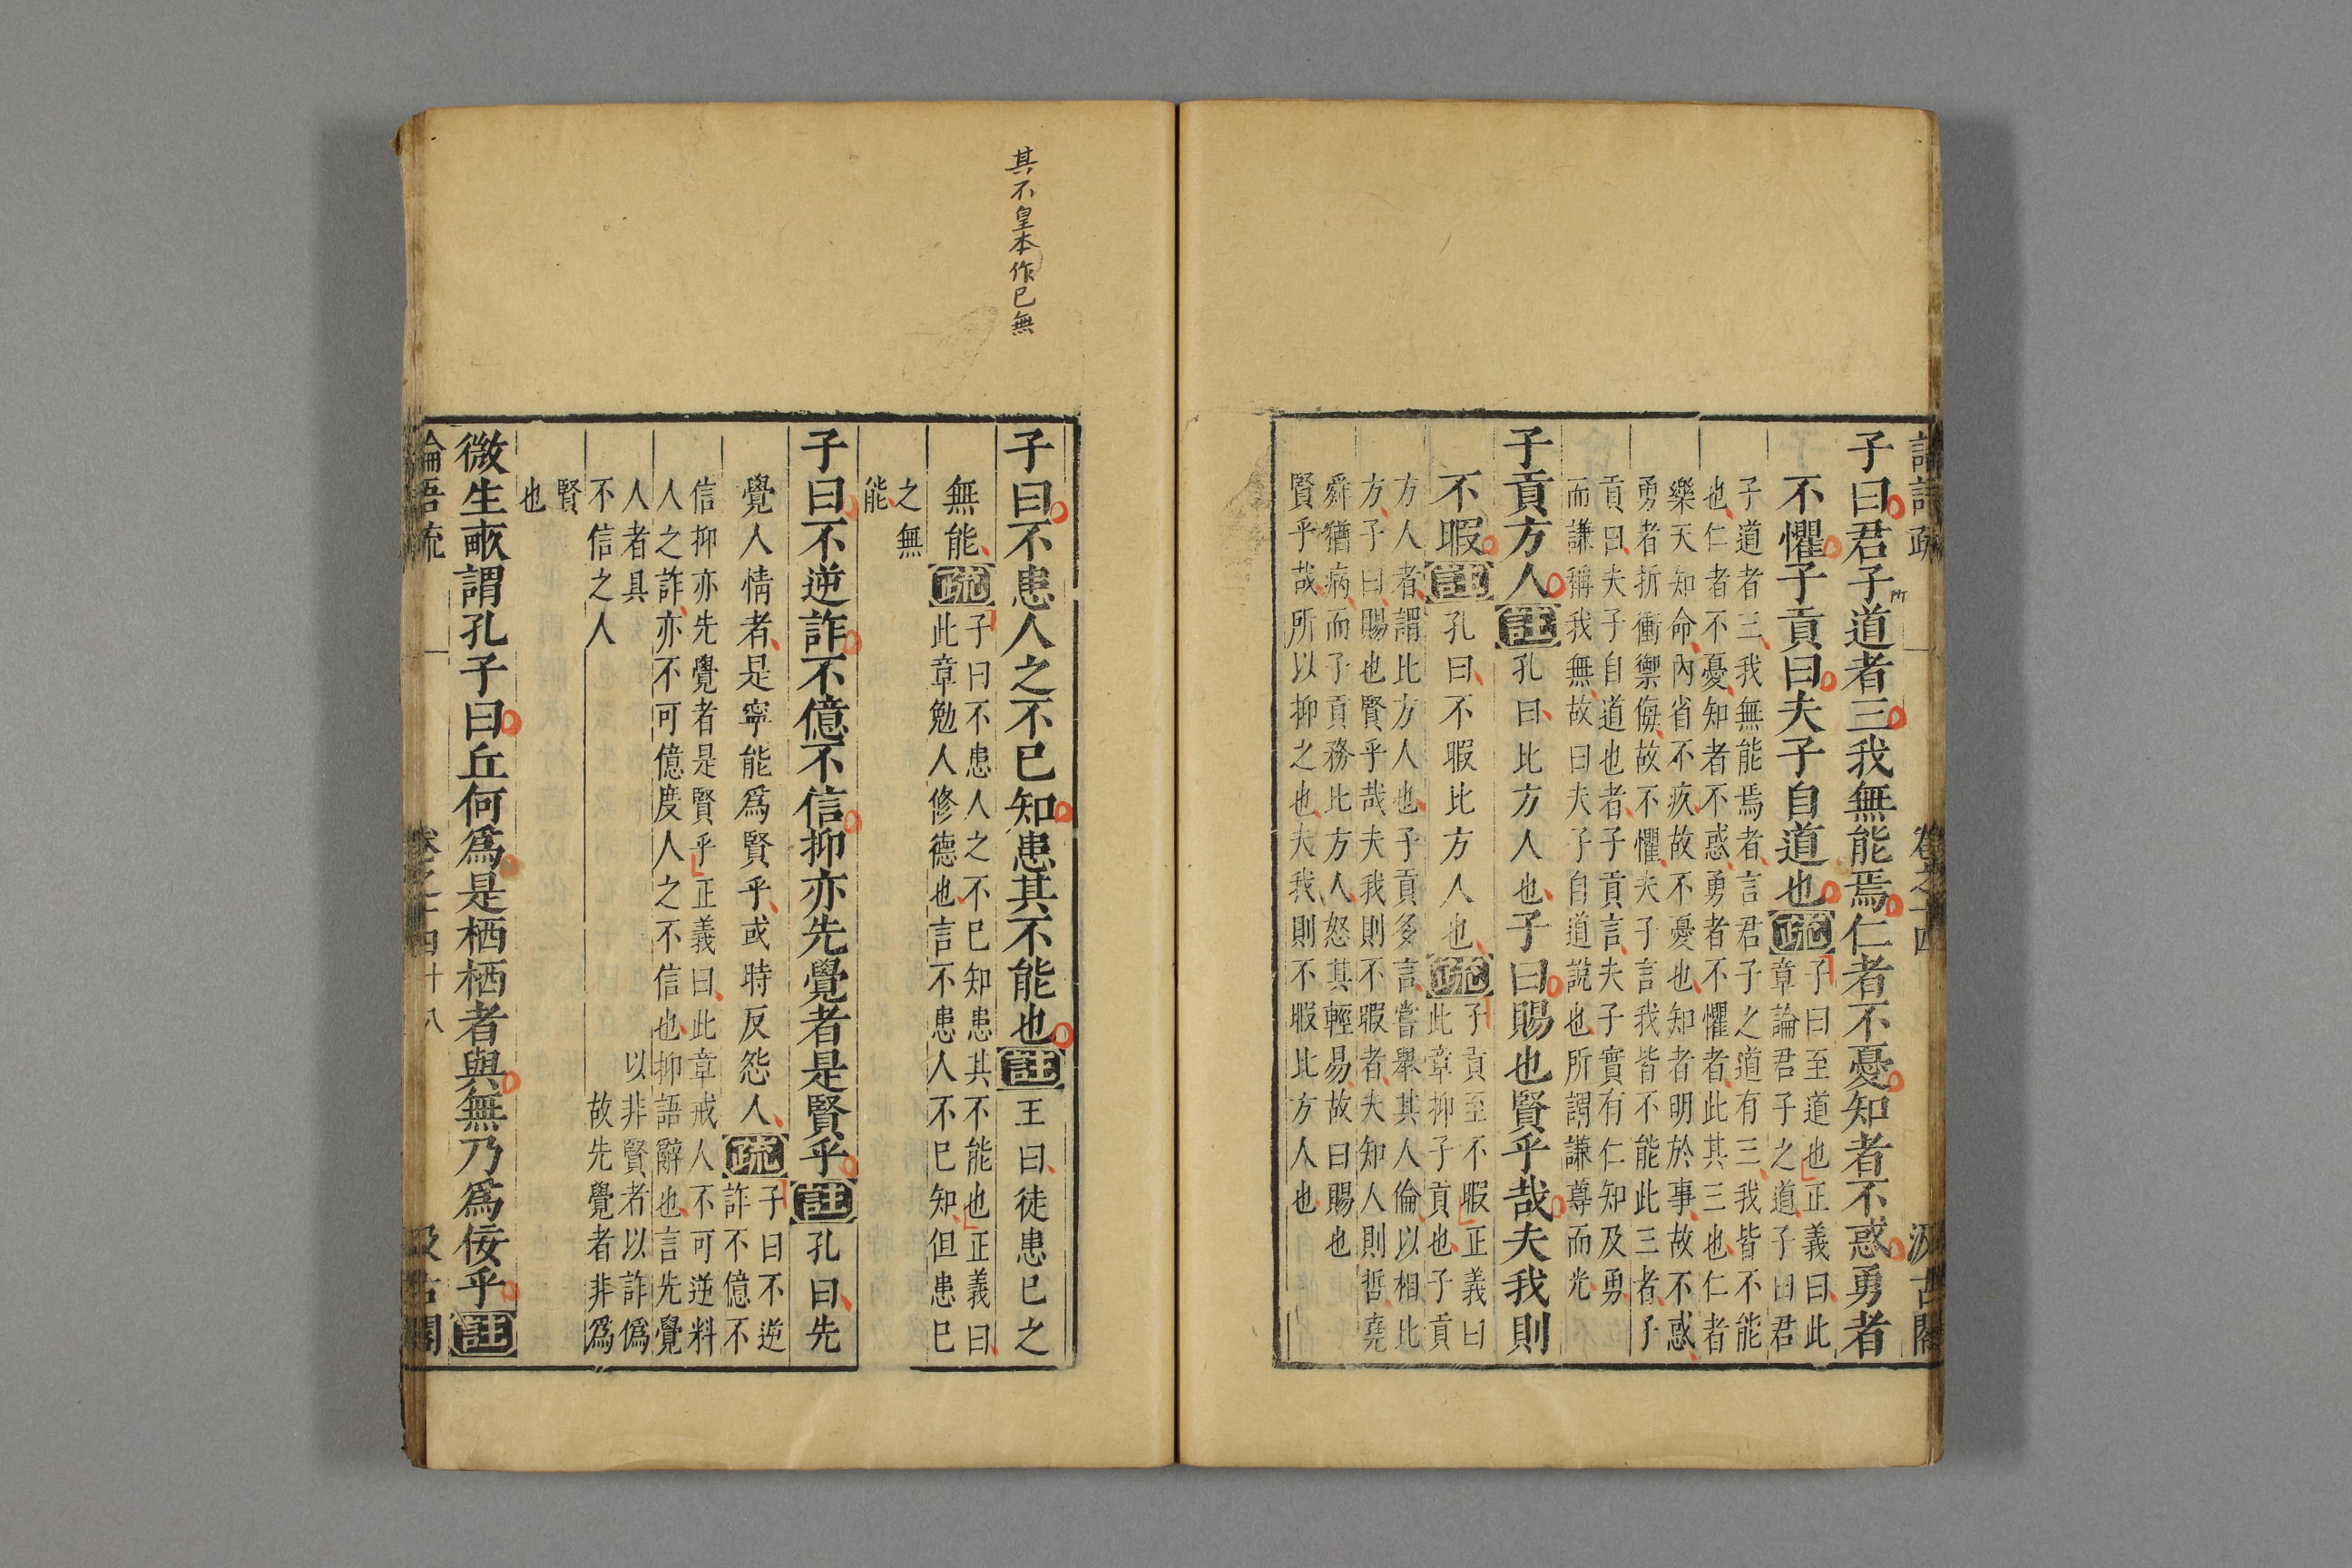 論語疏 卷之十四 汲古閣
子曰君子道者三我無能焉仁者不憂知者不惑勇者
所
不懼子貢曰夫子自道也疏
子曰至道也正義曰此
章論君子之道子曰君
子道者三我無能焉者言君子之道有三我皆不能
也仁者不憂知者不惑勇者不懼者此其三也仁者
樂天知命內省不疚故不憂也知者明於事故不惑
勇者折衝禦侮故不懼夫子言我皆不能此三者子
貢曰夫子自道也者子貢言夫子實有仁知及勇
而謙稱我無故曰夫子自道說也所謂謙尊而光
子貢方人註孔曰比方人也子曰賜也賢乎哉夫我則
不暇註孔曰不暇比方人也疏
子貢至不暇正義曰
此章抑子貢也子貢
方人者謂比方人也子貢多言嘗舉其人倫以相比
方子曰賜也賢乎哉夫我則不暇者夫知人則哲堯
舜猶病而子貢務比方人怒其輕易故曰賜也
賢乎哉所以抑之也夫我則不暇比方人也
其不皇本作已無
子曰不患人之不已知患其不能也註王曰徒患已之
無能疏
子曰不患人之不已知患其不能也正義曰
此章勉人修德也言不患人不已知但患已
之無
能
子曰不逆詐不億不信抑亦先覺者是賢乎註孔曰先
覺人情者是寧能爲賢乎或時反怨人疏
子曰不逆
詐不億不
信抑亦先覺者是賢乎正義曰此章戒人不可逆料
人之詐亦不可億度人之不信也抑語辭也言先覺
人者具以非賢者以詐僞
不信之人故先覺者非爲
賢
也
微生畝謂孔子曰丘何爲是栖栖者與無乃爲佞乎註
論語疏 卷之十四 十八 汲古閣